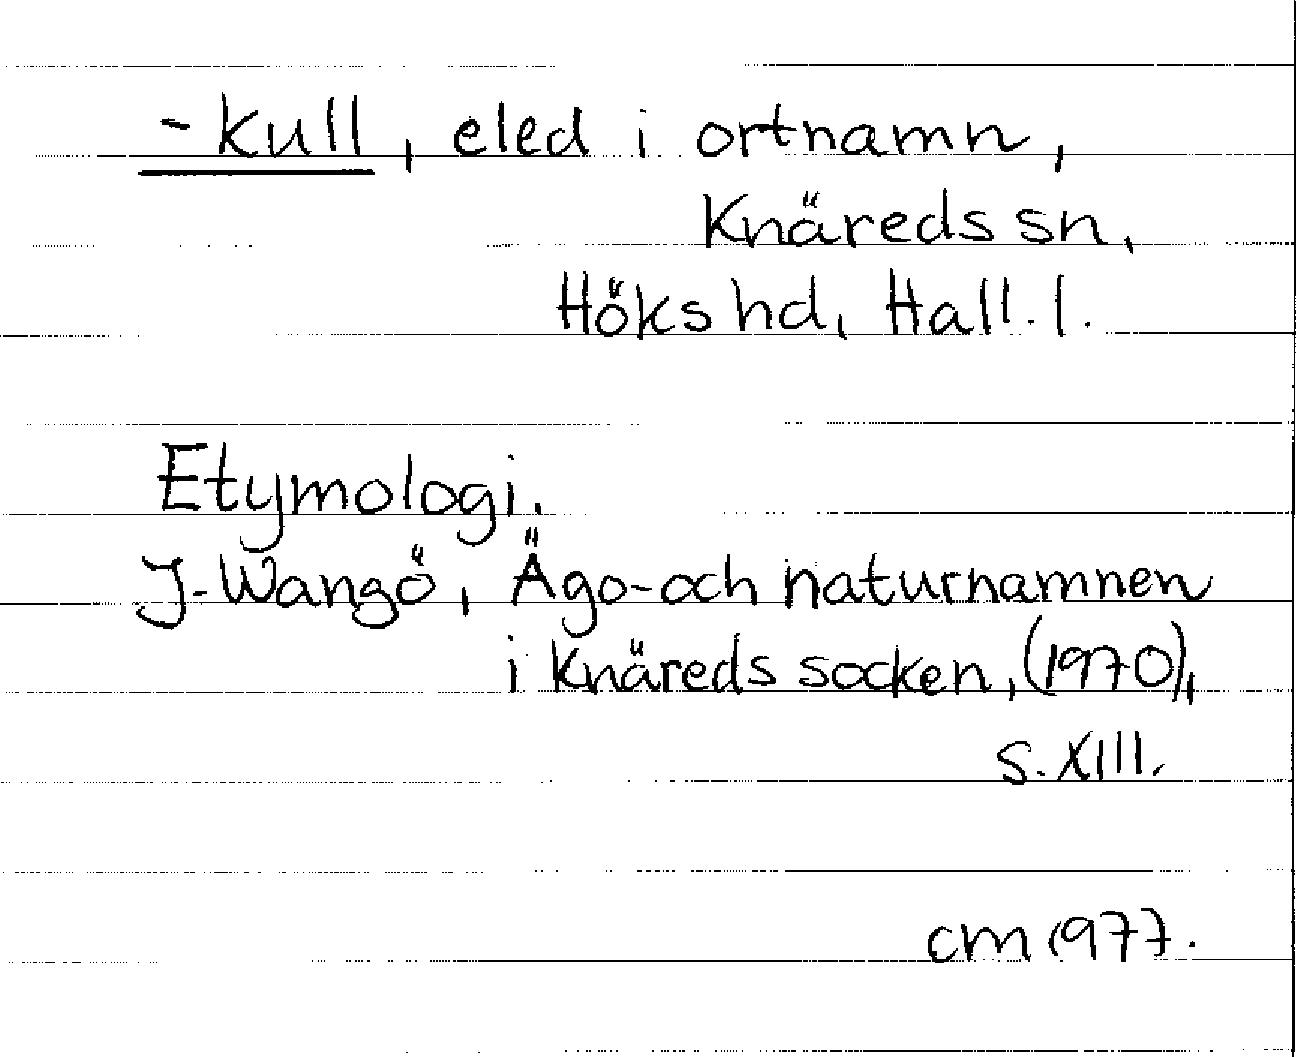 -kull, eled i ortnamn,
Knäreds sn,
Höks hd, Hall. l.
Etymologi.
J. Wangö, Ägo- och naturnamnen
i Knäreds socken, (1970),
s. XIII.
cm 1977.